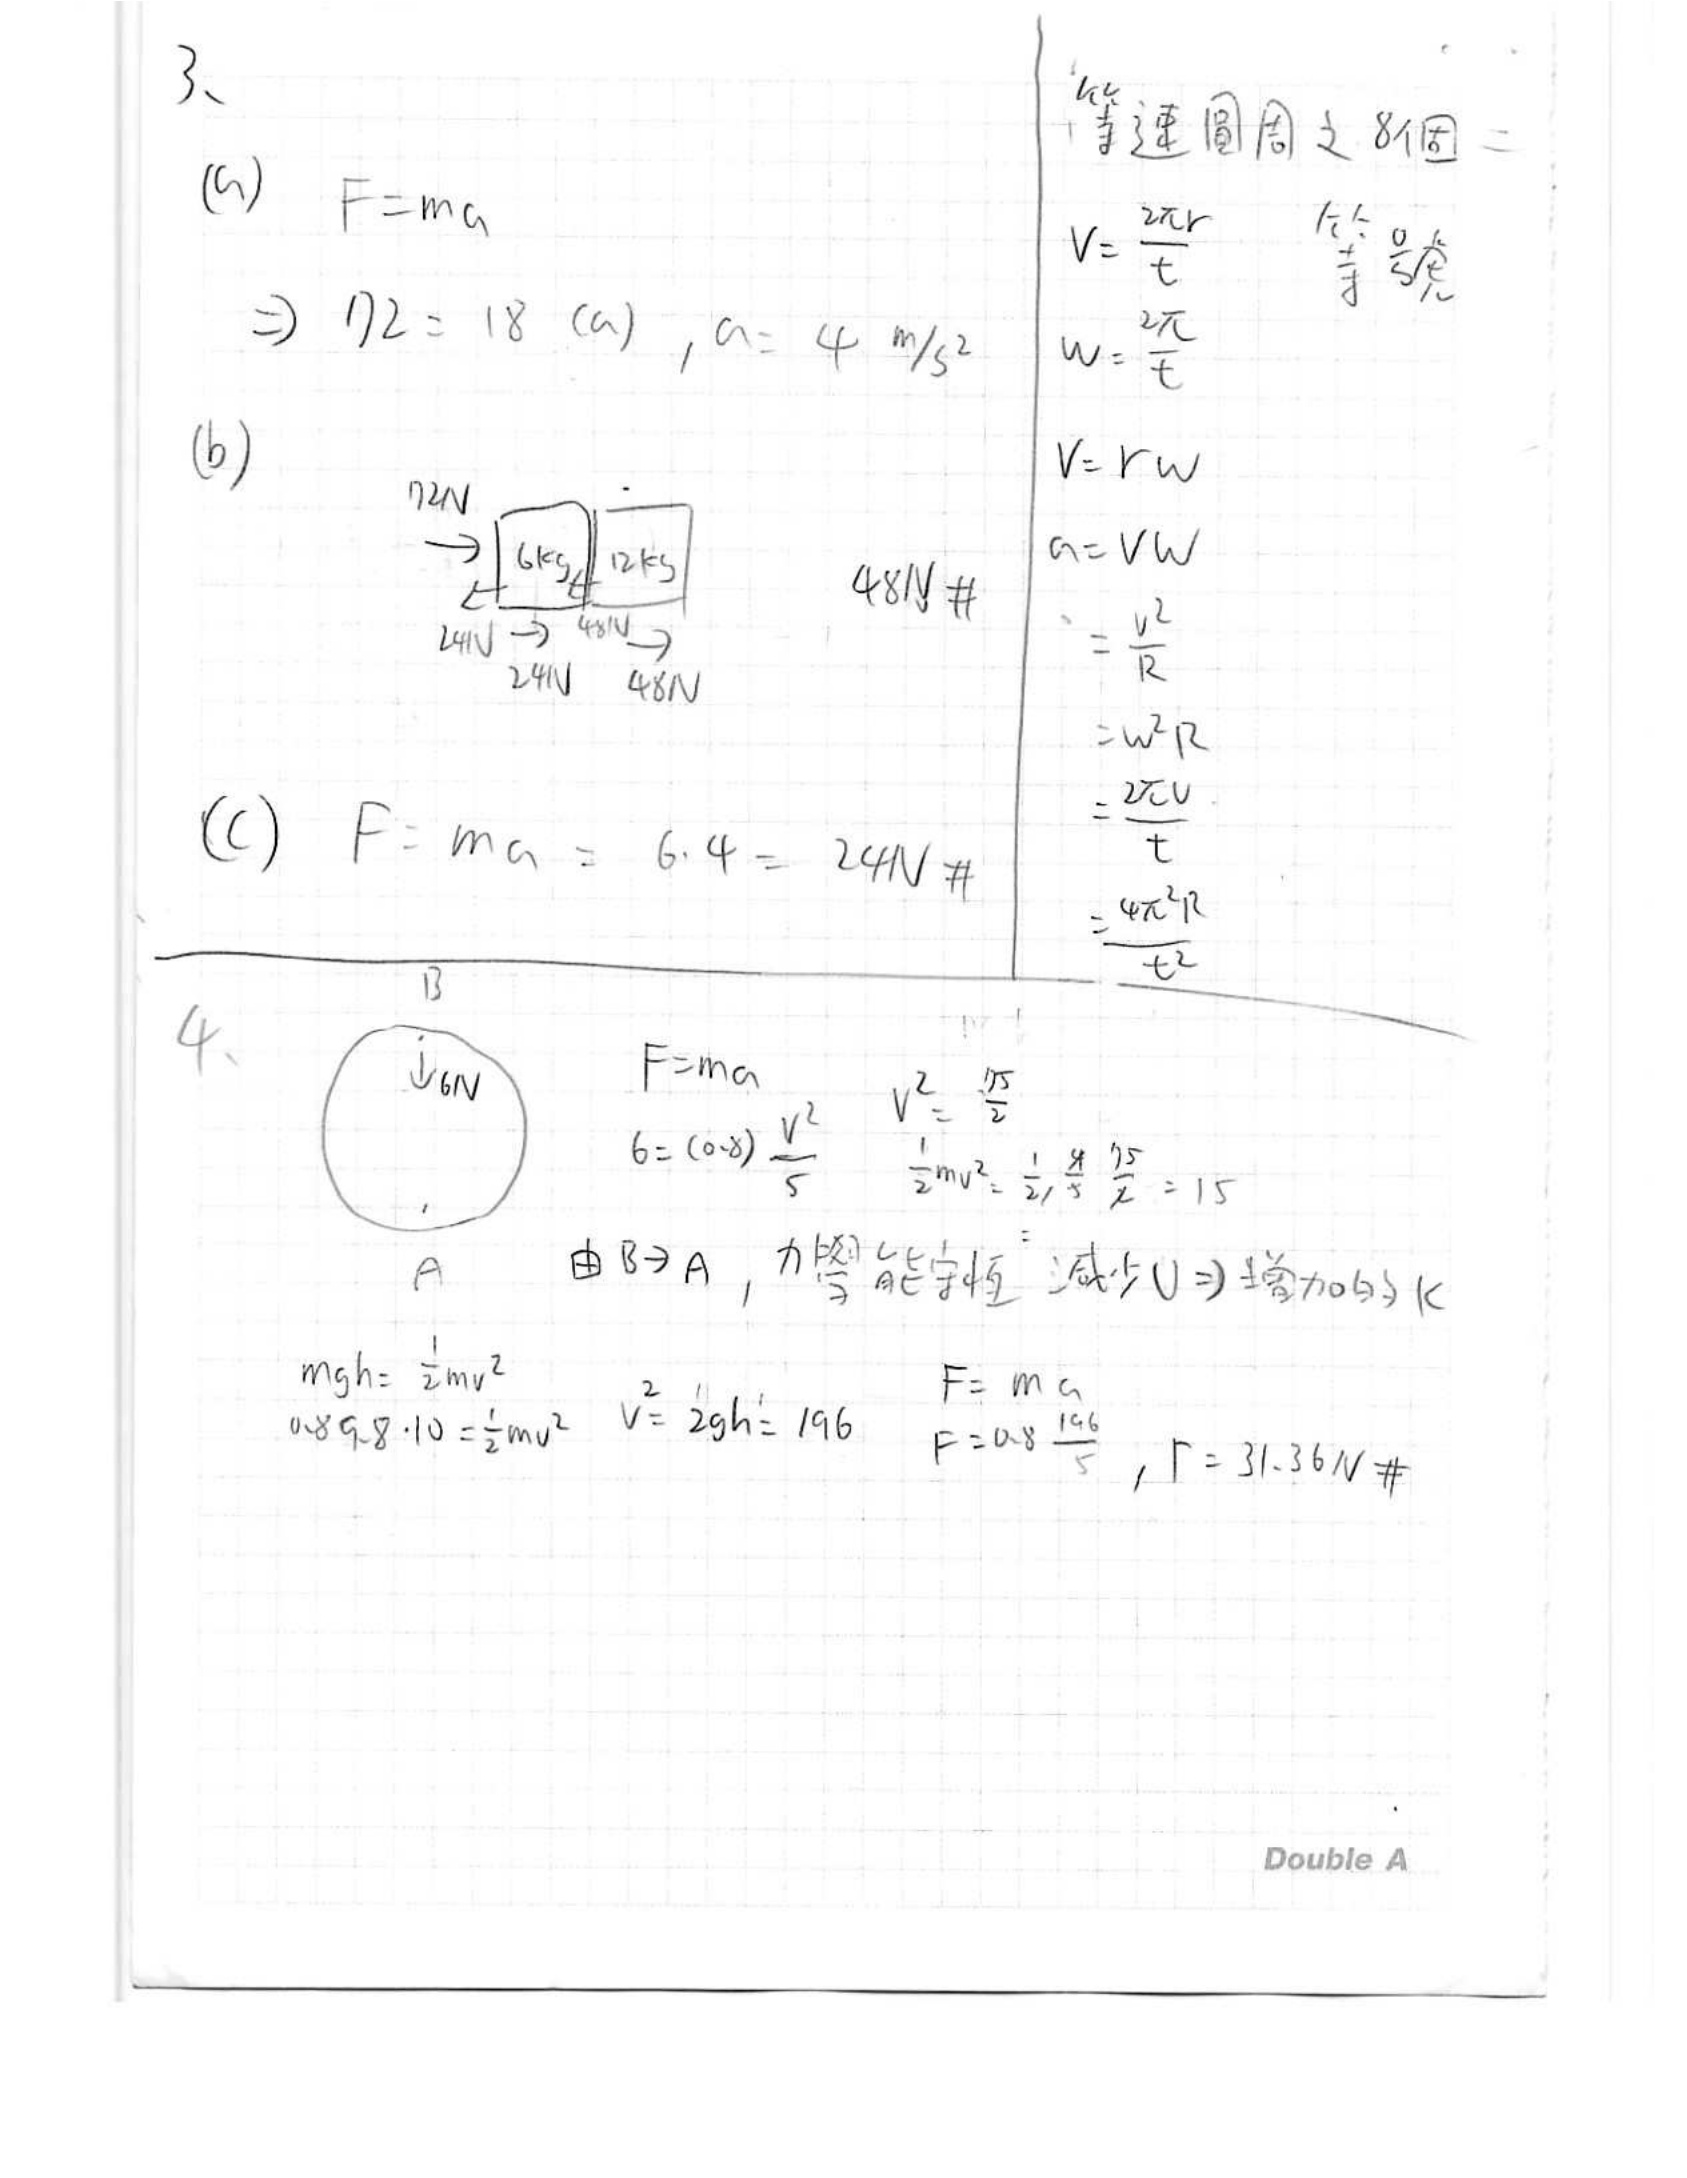 3、
(a) F=ma
⇒ 72 = 18 (a) , a= 4 m/s²
(b)
72N
→ 6kg 12kg
48N #
24N → 48N →
24N 48N
(c) F= ma = 6·4 = 24N #
等速圓周之8個=
等號
V= 2πr/t
w= 2π/t
V= rw
a= Vw
= v²/R
= w²R
= 2πV/t
= 4π²R/t²
4、
B
↓6N
A
F=ma
6= (0.8) v²/5
V²= 75/2
½mv²= ½, 4/5 75/2 = 15
由B→A, 力學能守恆 減少U⇒增加的K
mgh= ½mv²
0.8 9.8·10 = ½mv²
V²= 2gh = 196
F= ma
F=0.8 196/5 , F= 31.36N #
Double A